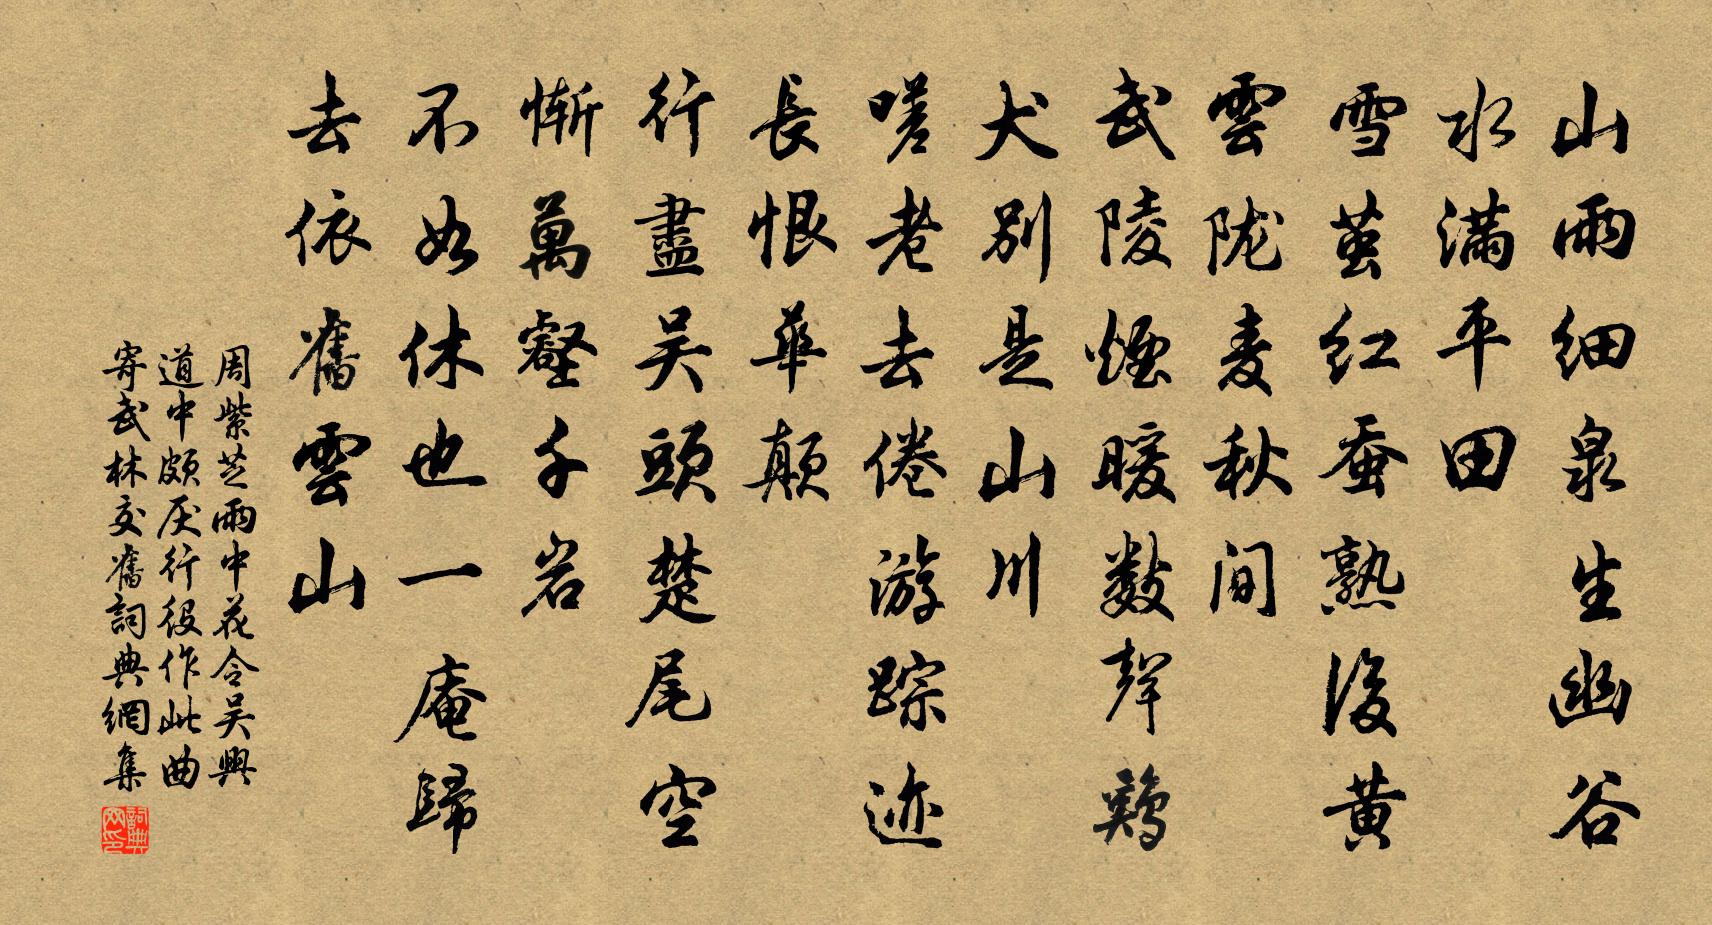 山雨细泉生幽谷
水满平田
雪茧红蚕熟後黄
雲陇麦秋间
武陵煙暖数聲鷄
犬别是山川
嗟老去倦游踪迹
長恨華颠
行盡吴頭楚尾空
惭萬壑千岩
不如休也一庵歸
去依舊雲山
周紫芝雨中花令吴興
道中颇厌行役作此曲
寄武林交舊詞典網集
詞典网印